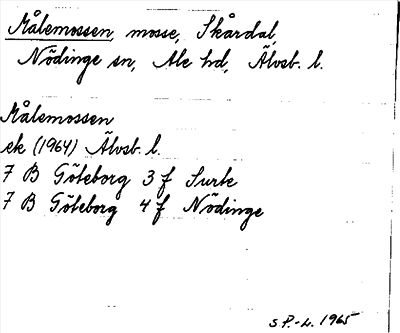 Målemossen, mosse, Skårdal,
Nödinge sn, Ale hd, Älvsb. l.
Målemossen
ek (1964) Älvsb. l.
7 B Göteborg 3 f Surte
7 B Göteborg 4 f Nödinge
S P.-L. 1965